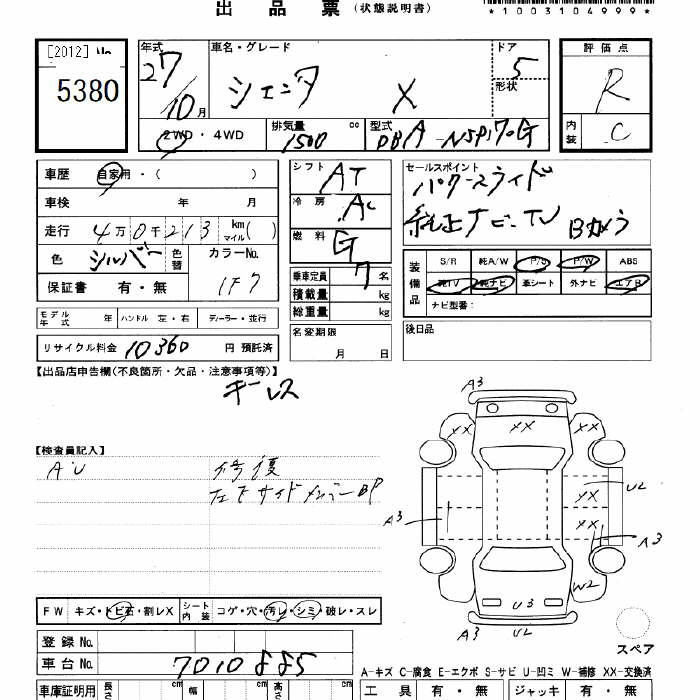 出品票 (状態説明書)
*1003104999*
[2012] No 5380
年式 27/10月
車名・グレード シエンタ X
ドア 5
形状
評価点 R
内装 C
2WD・4WD
排気量 1500 cc
型式 DBA-NSP170G
車歴 自家用・( )
車検 年 月
走行 4万0千213 km マイル( )
色 シルバー 色替 カラーNo. 1F7
保証書 有・無
シフト AT
冷房 AC
燃料 G
乗車定員 7名
積載量 kg
総重量 kg
セールスポイント
パワースライド
純正ナビ・TV Bカメラ
装備品 S/R 純A/W P/S P/W ABS
純TV 純ナビ 革シート 外ナビ エアB
ナビ型番:
モデル年式 年 ハンドル 左・右 ディーラー・並行
名変期限 月 日
後日品
リサイクル料金 10360 円 預託済
【出品店申告欄(不良箇所・欠品・注意事項等)】
キーレス
【検査員記入】
A・U 修復
左下サイドメンバーBP
A3
XX XX XX
U2
XX
A3 XX A3
W2
U3
A3 U2
スペア
FW キズ・トビ石・割レX シート内装 コゲ・穴・汚レ・シミ・破レ・スレ
登録No.
車台No. 7010885
A-キズ C-腐食 E-エクボ S-サビ U-凹ミ W-補修 XX-交換済
車庫証明用 長さ cm 幅 cm 高さ cm 工具 有・無 ジャッキ 有・無